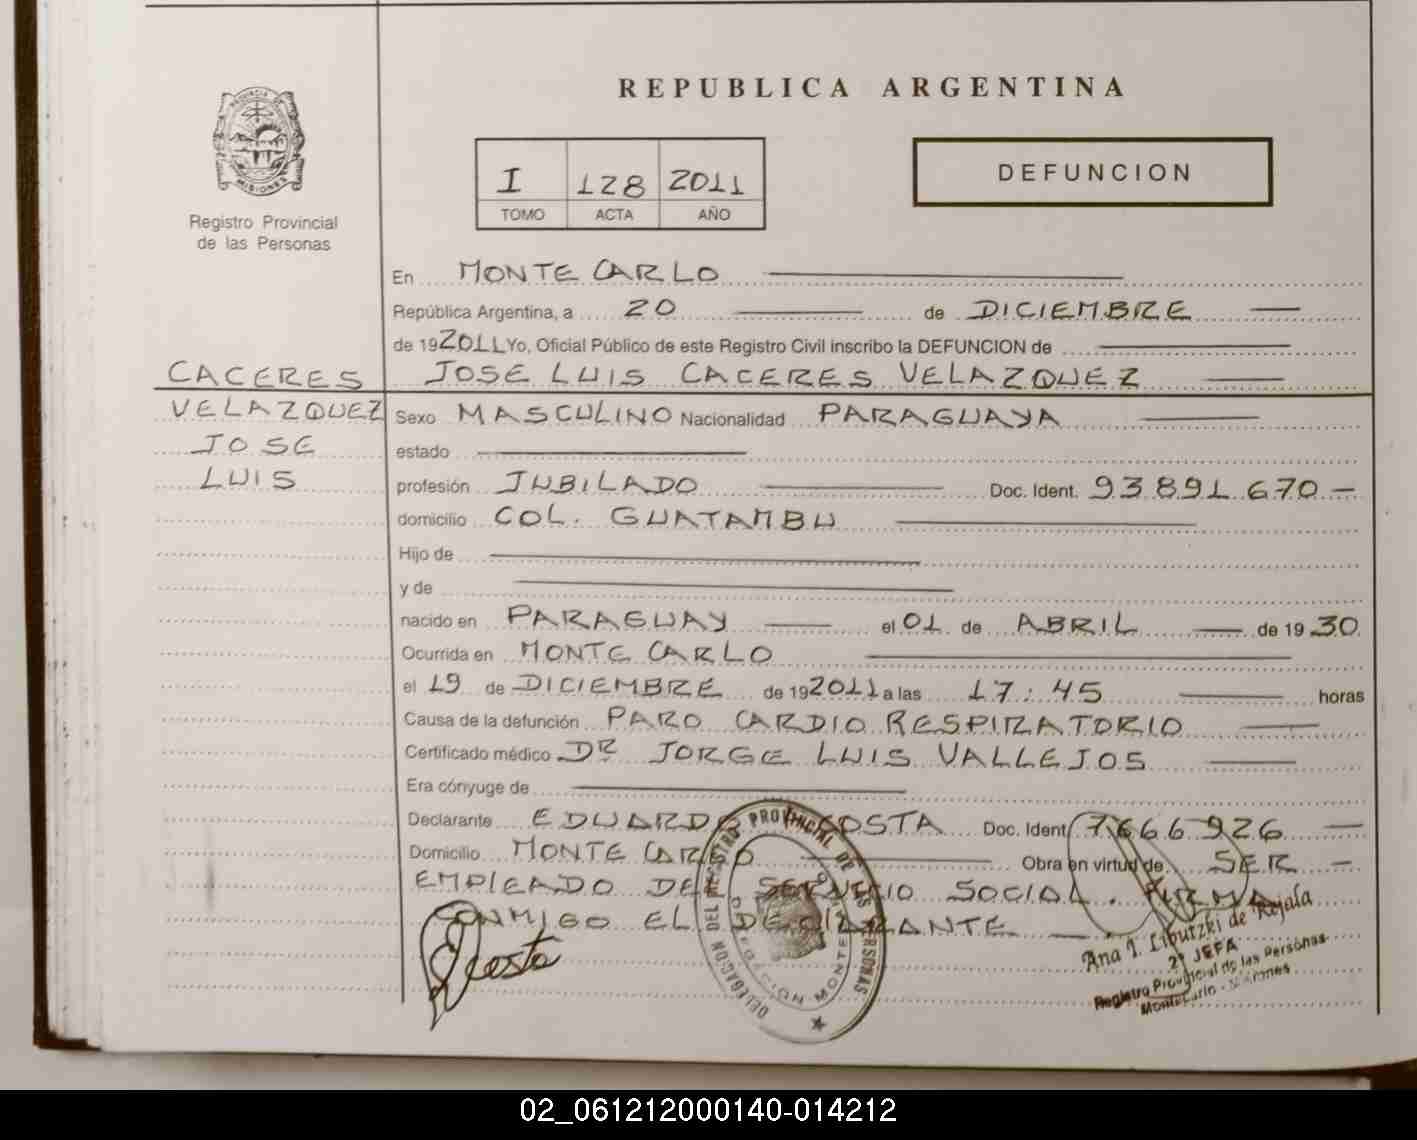 REPUBLICA ARGENTINA
PROVINCIA DE
MISIONES
Registro Provincial
de las Personas
I 128 2011
TOMO ACTA AÑO
DEFUNCION
En MONTE CARLO
República Argentina, a 20 de DICIEMBRE
de 192011 Yo, Oficial Público de este Registro Civil inscribo la DEFUNCION de
CACERES
VELAZQUEZ
JOSE
LUIS
JOSE LUIS CACERES VELAZQUEZ
Sexo MASCULINO Nacionalidad PARAGUAYA
estado
profesión JUBILADO Doc. Ident. 93891670
domicilio COL. GUATAMBU
Hijo de
y de
nacido en PARAGUAY el 01 de ABRIL de 1930
Ocurrida en MONTE CARLO
el 19 de DICIEMBRE de 192011 a las 17:45 horas
Causa de la defunción PARO CARDIO RESPIRATORIO
Certificado médico DR JORGE LUIS VALLEJOS
Era cónyuge de
Declarante EDUARDO COSTA Doc. Ident 7666926
Domicilio MONTE CARLO Obra en virtud de SER
EMPLEADO DEL SERVICIO SOCIAL. FIRMA
CONMIGO EL DECLARANTE
Costa
DELEGACION DEL REGISTRO PROVINCIAL DE LAS PERSONAS
DELEGACION MONTE
Ana I. Libutzki de Rejala
2ª JEFA
Registro Provincial de las Personas
Montecarlo - Misiones
02_061212000140-014212